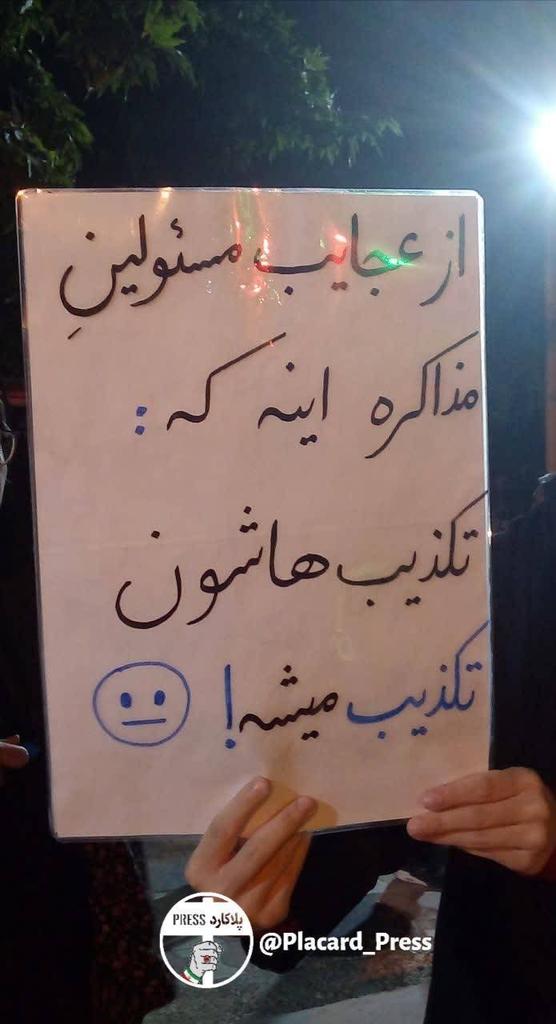 از عجایب مسئولینِ
مذاکره اینه که :
تکذیب هاشون
تکذیب میشه!
PRESS پلاکارد
@Placard_Press